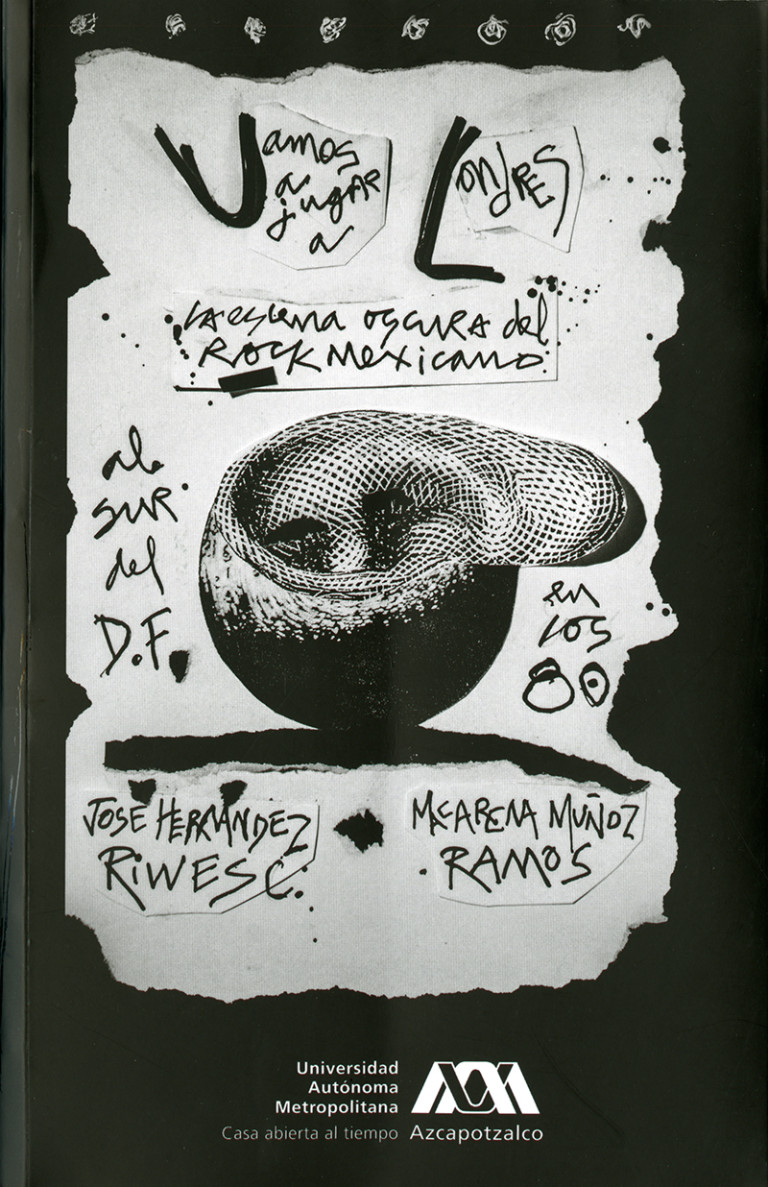 Vamos
a
jugar
a
Londres
La escena oscura del
Rock Mexicano
al
sur
del
D.F.
en
los
80
JOSE HERNÁNDEZ
RIWES C.
MACARENA MUÑOZ
RAMOS
Universidad
Autónoma
Metropolitana
Casa abierta al tiempo Azcapotzalco